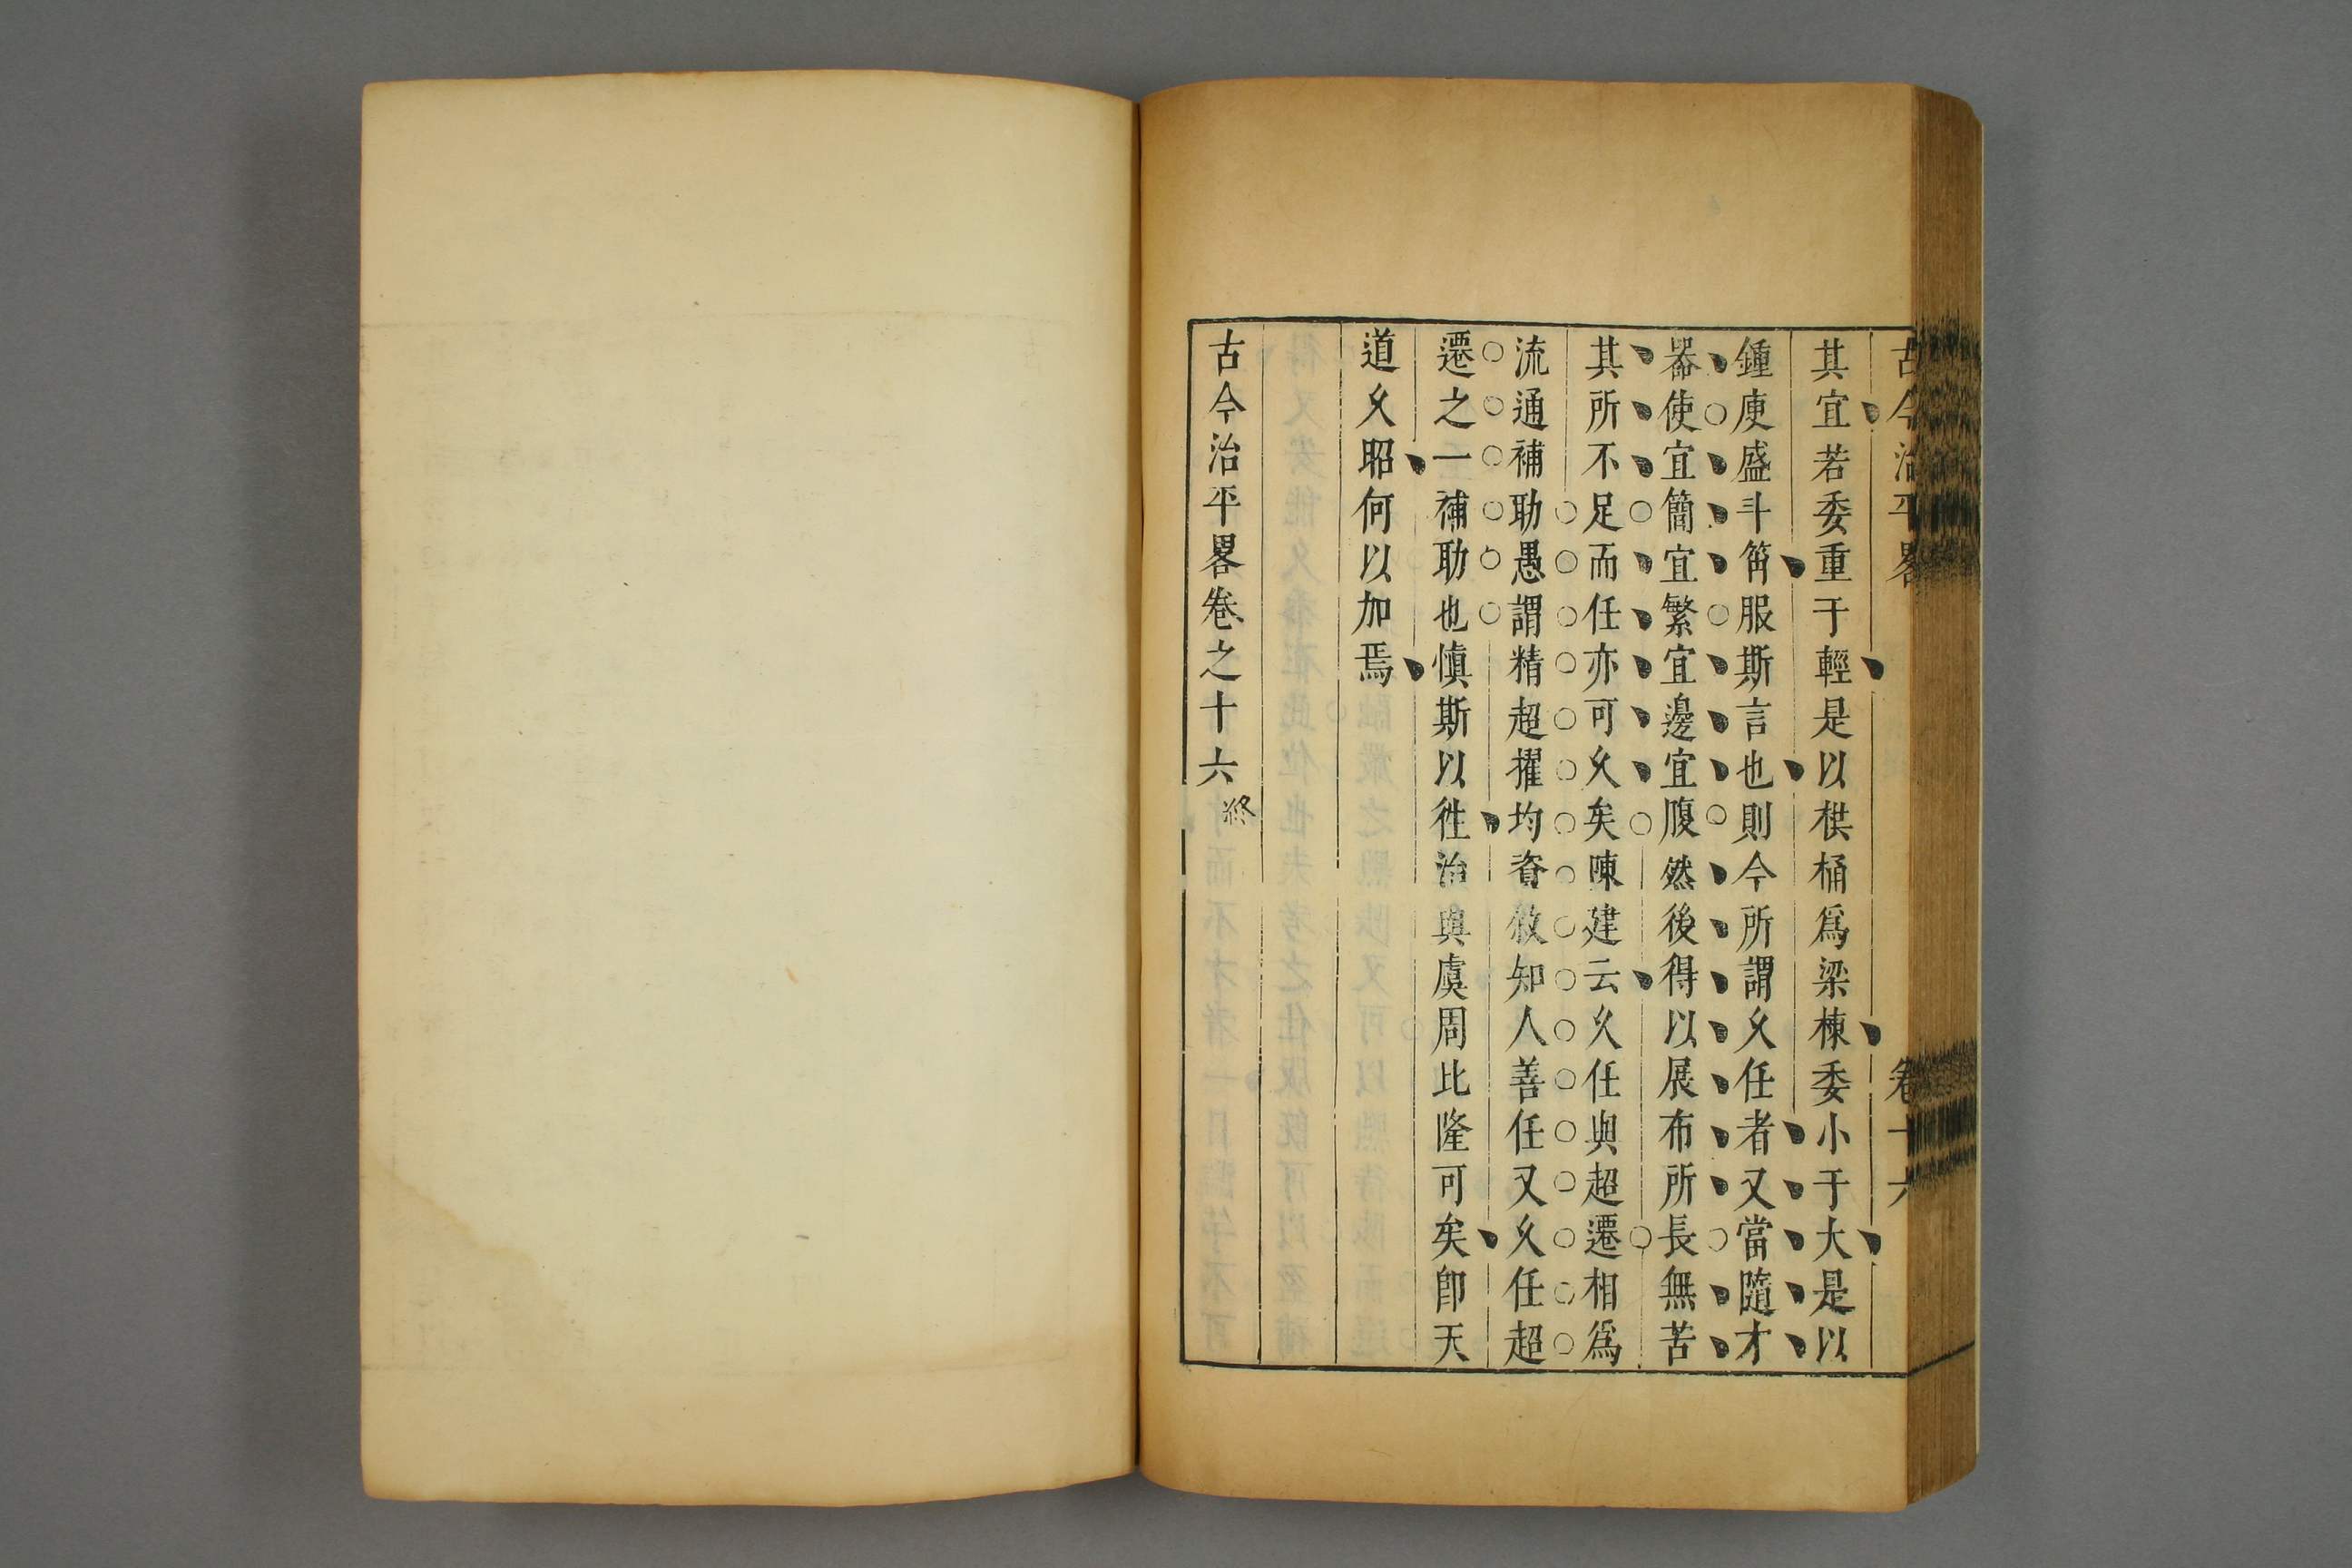 古今治平畧 卷十六
其宜若委重于輕是以栱桷爲梁棟委小于大是以
鍾庾盛斗筲服斯言也則今所謂久任者又當隨才
器使宜簡宜繁宜邊宜腹然後得以展布所長無苦
其所不足而任亦可久矣陳建云久任與超遷相爲
流通補助愚謂精超擢均資敘知人善任又久任超
遷之一補助也慎斯以徃治與虞周比隆可矣卽天
道久昭何以加焉
古今治平畧卷之十六終